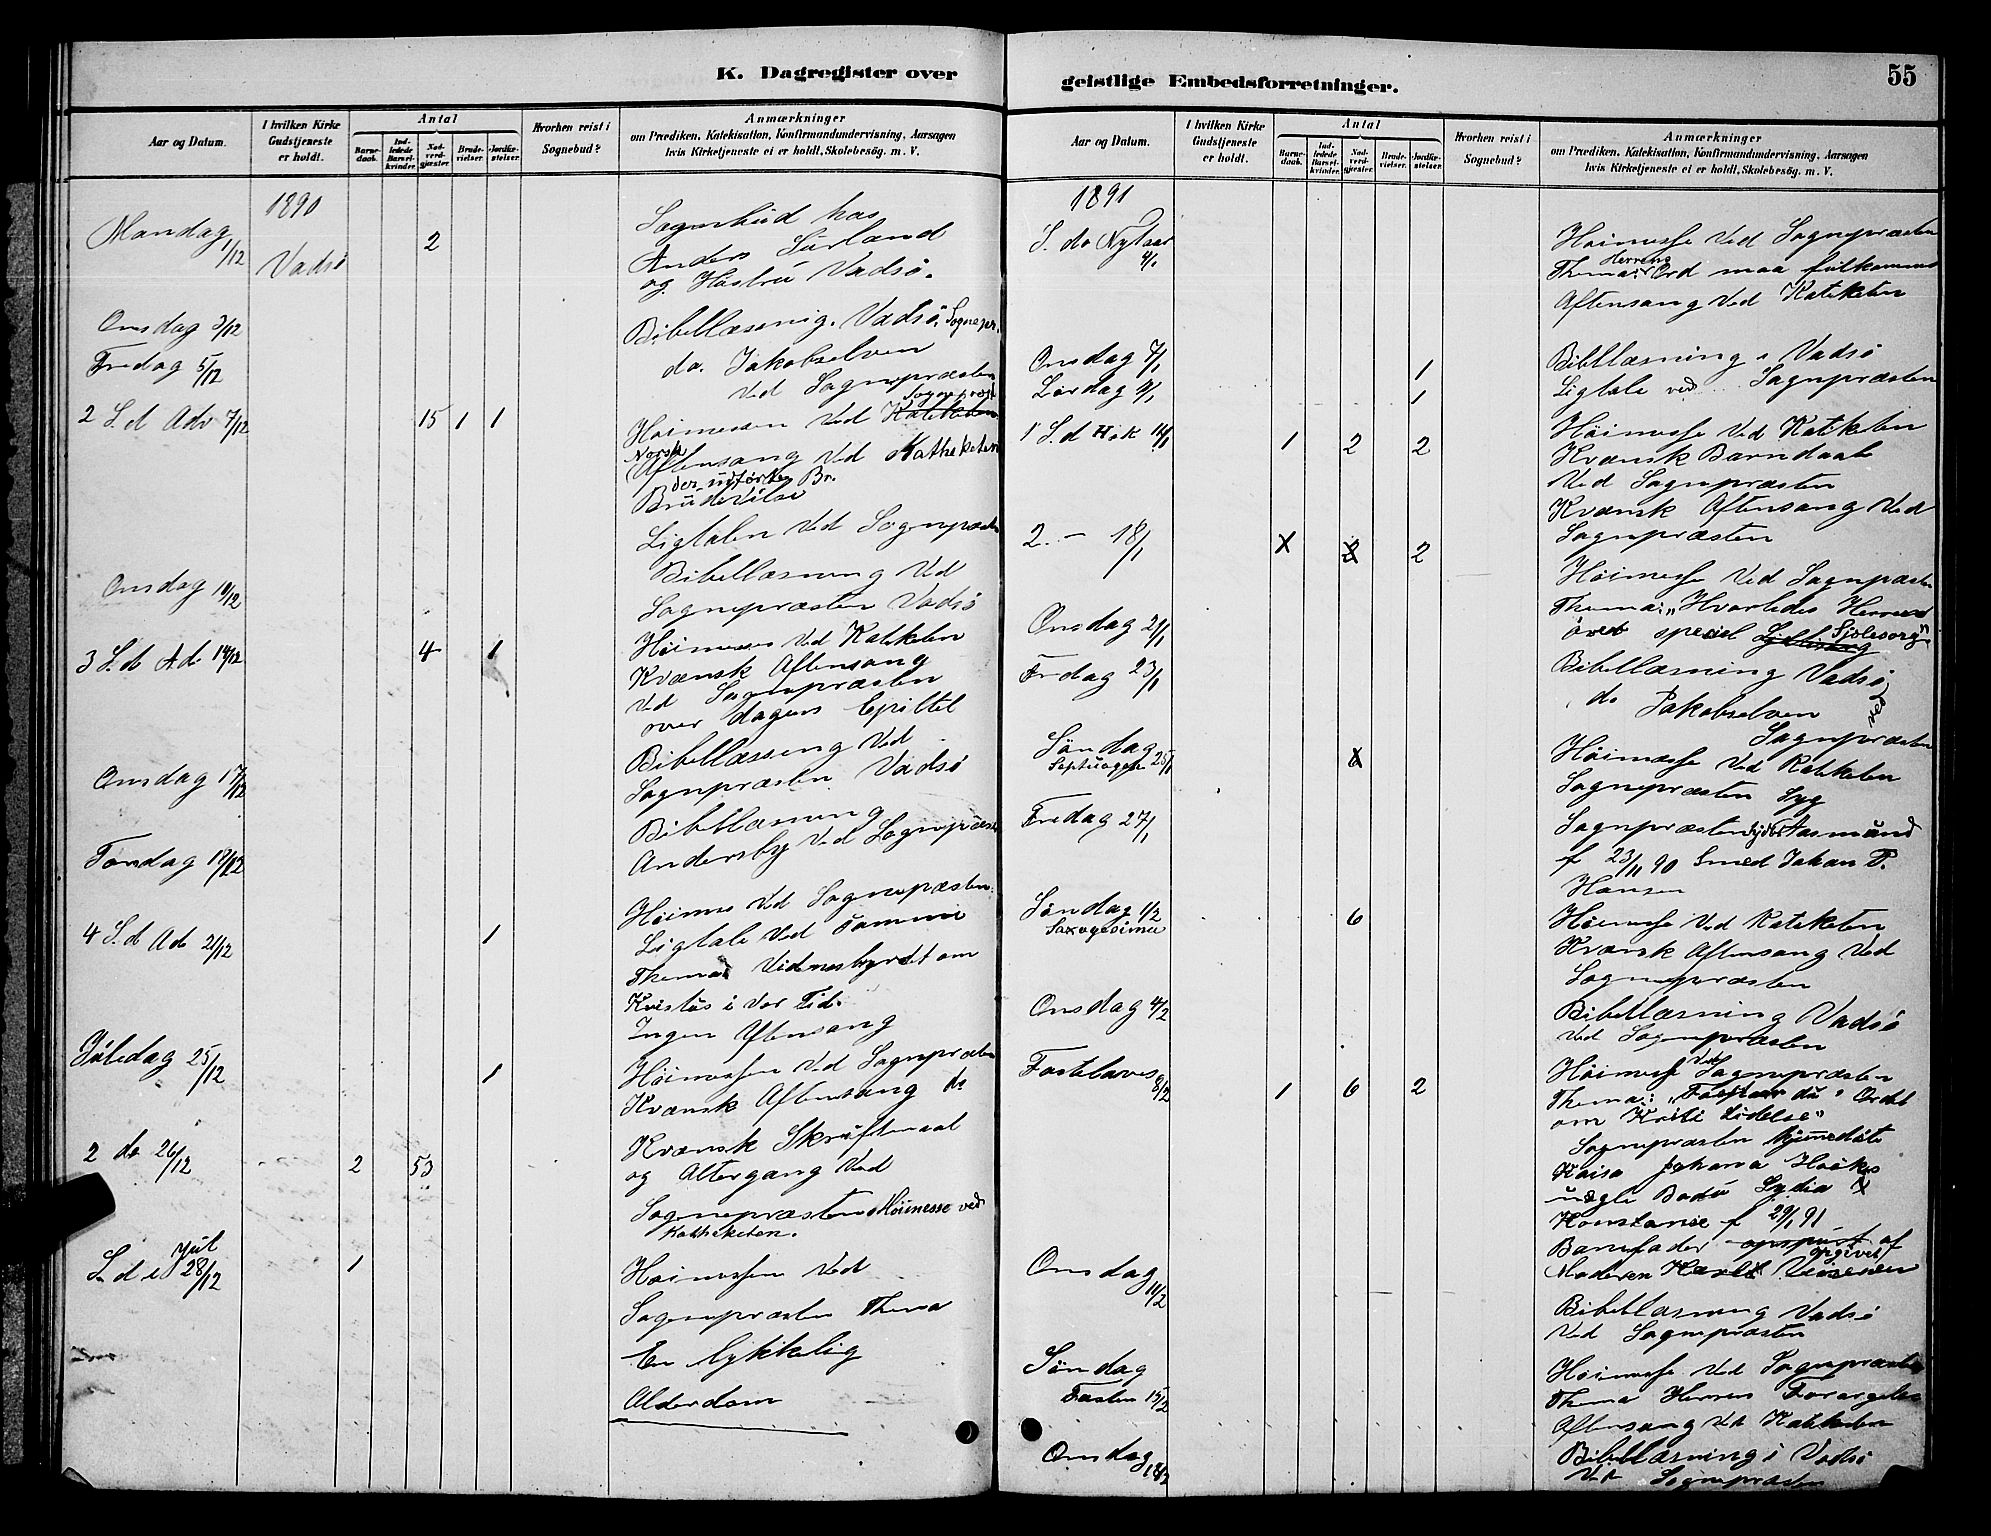 K. Dagregister over
Aar og Datum.
I hvilken Kirke Gudstjeneste er holdt.
Antal
Barnedaab.
Indledede Barselkvinder.
Nadverdgjæster.
Brudevielser.
Jordfæstelser.
Hvorhen reist i Sognebud?
Anmærkninger
om Prædiken, Katekisation, Konfirmandundervisning, Aarsagen
hvis Kirketjeneste ei er holdt, Skolebesög. m. V.
1890
Mandag 1/12 Vadsö 2 Sognebud hos
Anders
og Hustru Vadsö.
Onsdag 3/12 Bibellæsning. Vadsö, Sognepr.
Fredag 5/12 do. Jakobselven
ved Sognepræsten
2 S. d Adv 7/12 15 1 1 Høimessen ved Kateketen Sognepræst
Norsk
Aftensang ved Katheketen
der udførte Br.
Brudevilse
Ligtalen ved Sognepræsten
Onsdag 10/12 Bibellæsning ved
Sognepræsten Vadsö
3 S. d Ad 14/12 4 1 Høimesse ved Katketen
Kvænsk Aftensang
ved Sognepræsten
over dagens Epistel
Onsdag 17/12 Bibellæsning ved
Sognepræsten Vadsö
Torsdag 18/12 Bibellæsning
Andersby ved Sognepræst
4 S. d Ad 21/12 1 Høimes ved Sognepræsten.
Ligtale ved samme
Thema Vidnesbyrdet om
Kristus i Vor Tid.
Ingen Aftensang
Juledag 25/12 1 Høimessen ved Sognepræsten
Kvænsk Aftensang do
2 do 26/12 2 53 Kvænsk Skriftemaal
og Altergang ved
Sognepræsten Høimesse ved
Katheketen.
S. d e Jul 28/12 1 Høimessen ved
Sognepræsten Thema
En lykkelig
Alderdom
geistlige Embedsforretninger.
55
Aar og Datum.
I hvilken Kirke Gudstjeneste er holdt.
Antal
Barnedaab.
Indledede Barselkvinder.
Nadverdgjæster.
Brudevielser.
Jordfæstelser.
Hvorhen reist i Sognebud?
Anmærkninger
om Prædiken, Katekisation, Konfirmandundervisning, Aarsagen
hvis Kirketjeneste ei er holdt, Skolebesög. m. V.
1891
S. do Nytaar 4/1 Høimesse ved Sognepræsten
Thema: Herrens Ord maa fulkommes
Aftensang ved Katketen
Onsdag 7/1 1 Bibellæsning i Vadsö
Lördag 1 Ligtale ved Sognepræsten
1 S. d H 3 K 11/1 1 2 2 Höimesse ved Katketen
Kvænsk Barndaab
ved Sognepræsten
Kvænsk Aftensang ved
Sognepræsten
2. - 18/1 x 2 Höimesse ved Sognepræsten
Thema: "Hvorledes Herren
øved speciel Sjælesorg"
Onsdag 21/1 Bibellæsning Vadsö
Fredag 23/1 do Jakobselven ved
Sognepræsten
Söndag Septuages 25/1 Høimesse ved Katketen
Sognepræsten Syg
Fredag 27/1 Sognepræsten Aasmund
f 23/11 90 Smed Johan P.
Hansen
Söndag 1/2 Saxagesima 6 Høimesse ved Katketen
Kvænsk Aftensang ved
Sognepræsten
Onsdag 4/2 Bibellæsning Vadsö
ved Sognepræsten
Fastelavns 8/2 1 6 2 Høimesse ved Sognepræsten
Thema: du Ordet
om Kristi Lidelse"
Sognepræsten hjemmedöbte
Kaisa Johana
uægte Lydia
Konstanse f 29/1 91
Barnefader opgivet af
Moderen
Onsdag 11/2 Bibellæsning Vadsö
ved Sognepræsten
Söndag Fasten 15/2 Høimesse ved Sognepræsten
Thema Herrens Forargelse
Aftensang ved Katketen
Onsdag 18/2 Bibellæsning i Vadsö
ved Sognepræsten